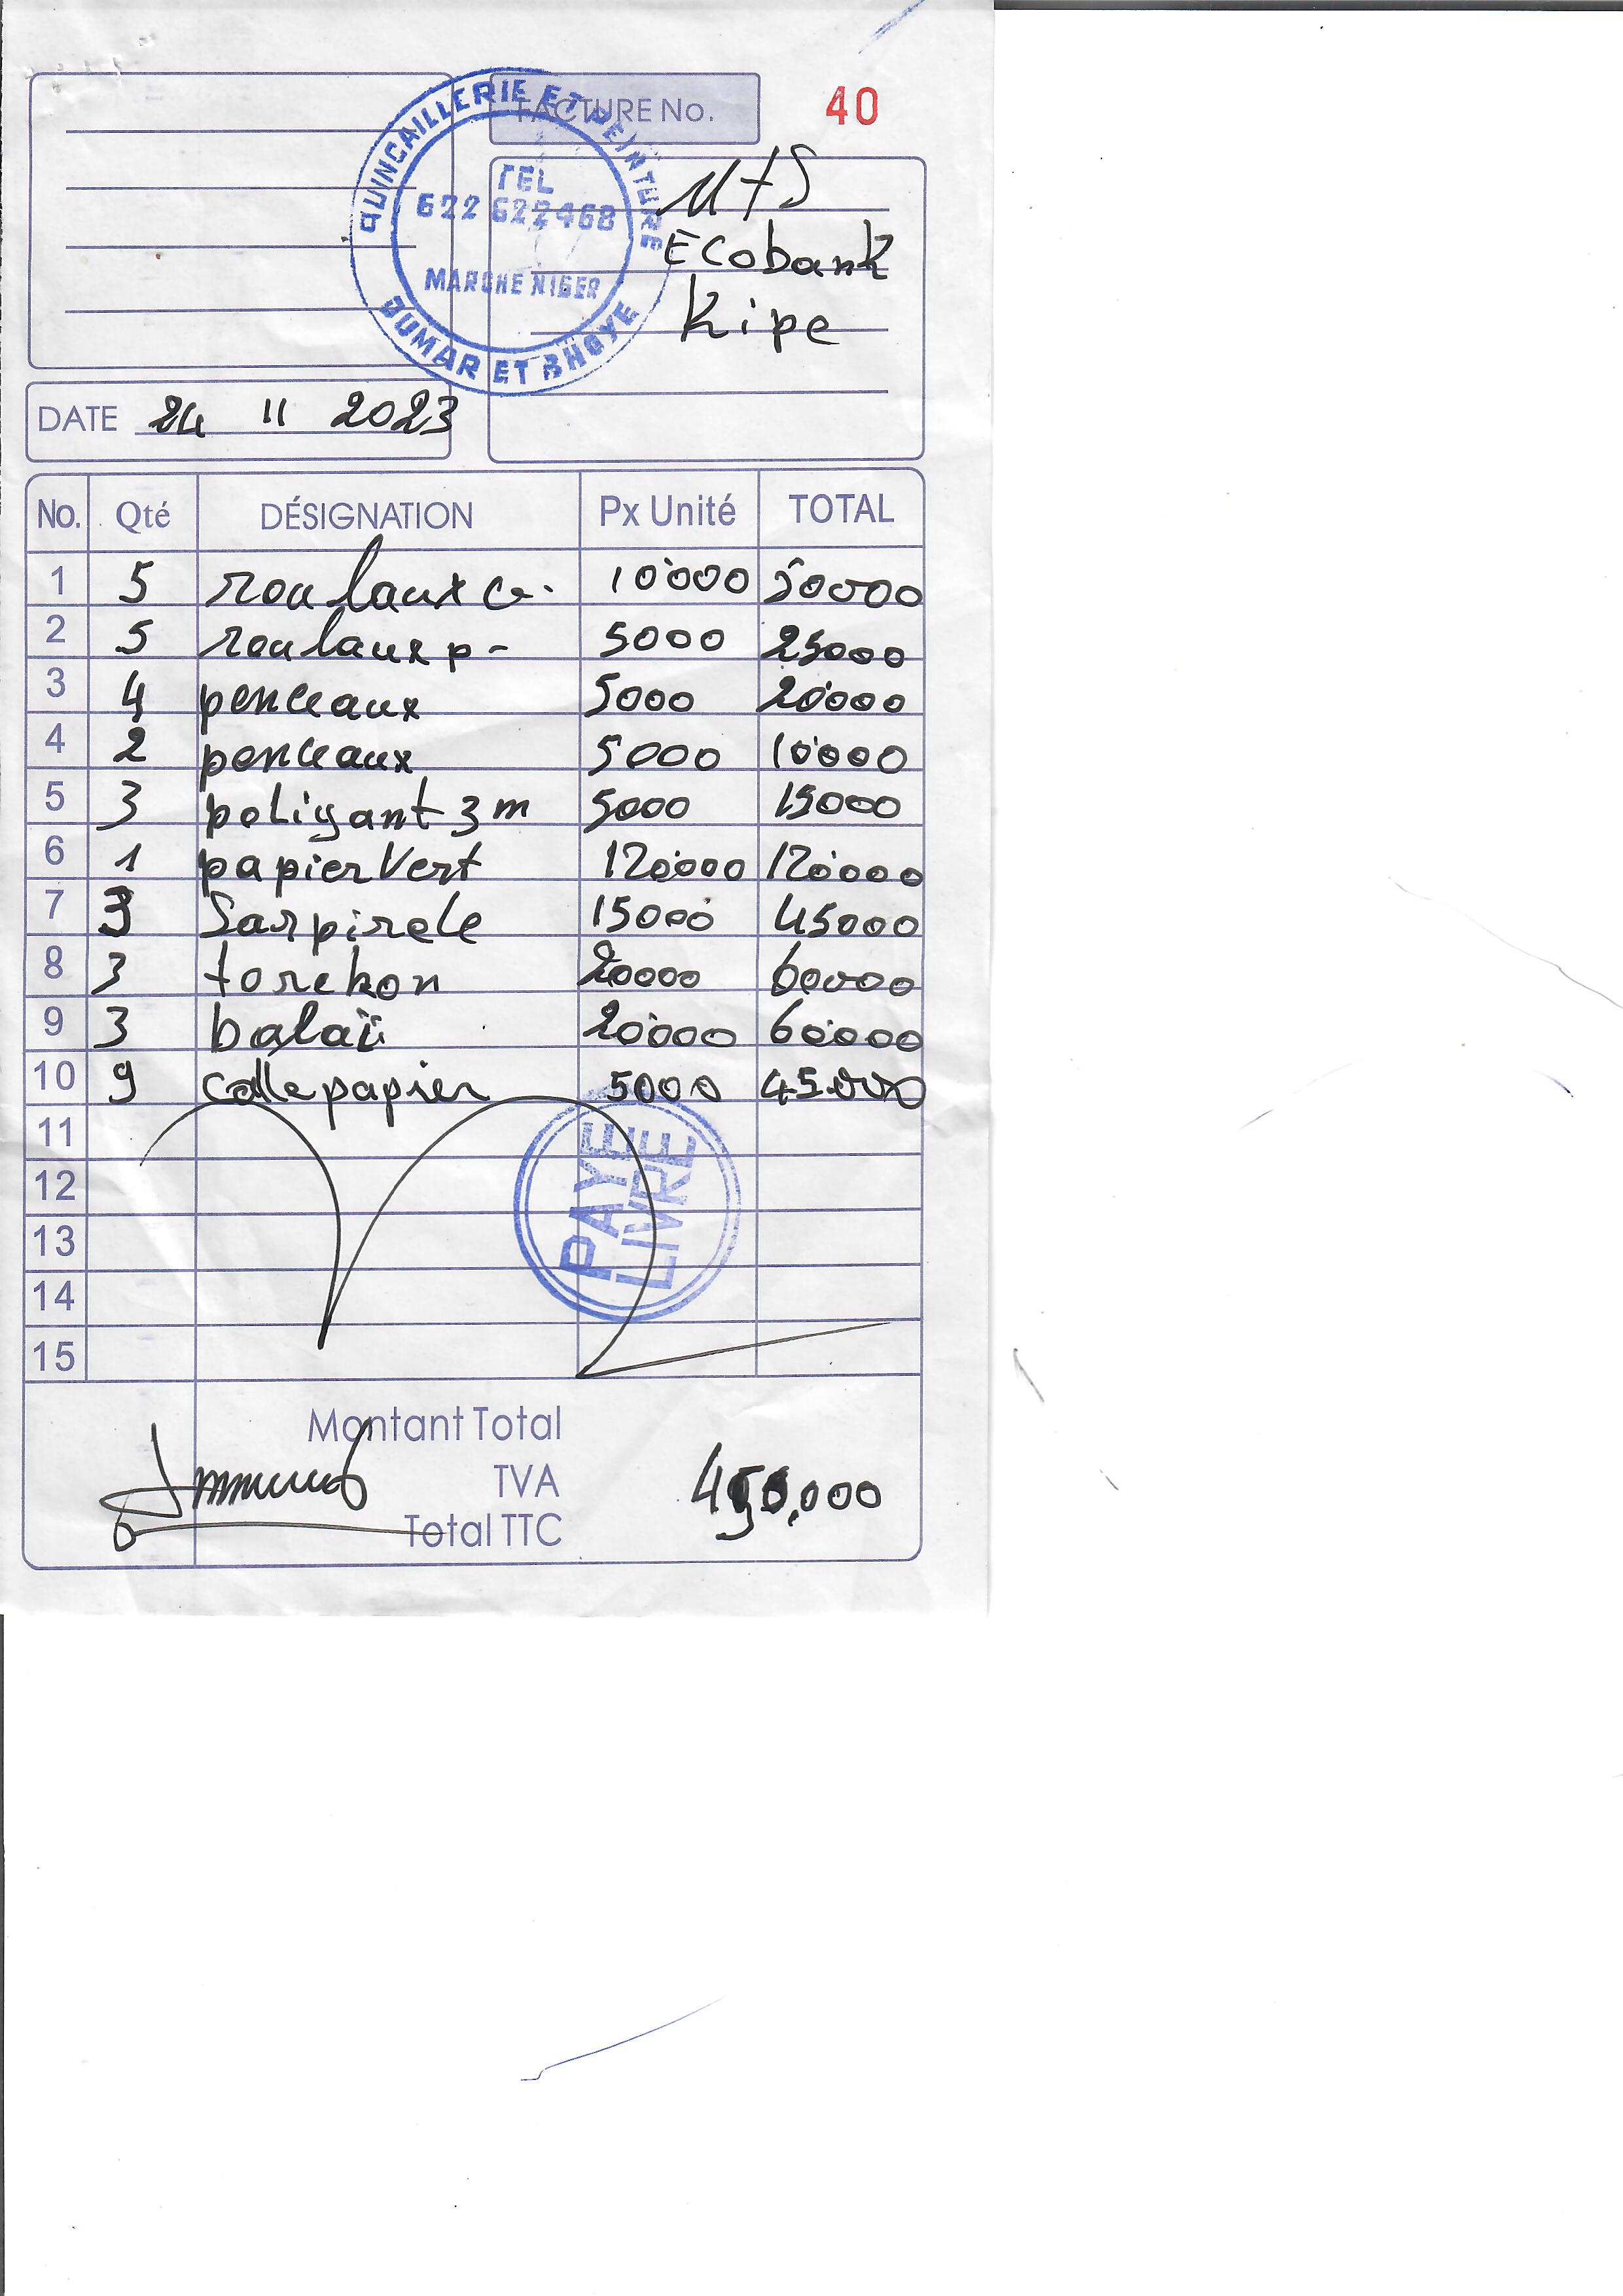 FACTURE No. 40
QUINCAILLERIE ET PEINTURE
TEL
622 622468
MARCHE NIGER
OUMAR ET BHOYE
MTS
Ecobank
Kipe
DATE 24 11 2023
No. Qté DÉSIGNATION Px Unité TOTAL
1 5 roulaux G. 10'000 50000
2 5 roulaux p- 5000 25000
3 4 penceaux 5000 20'000
4 2 penceaux 5000 10'000
5 3 poligant 3m 5000 15000
6 1 papier Vert 120'000 120'000
7 3 Sarpirele 15000 45000
8 3 torekon 20000 60000
9 3 balai 20'000 60'000
10 9 colle papier 5000 45.000
11
12
13
14
15
PAYE
LIVRE
Montant Total
TVA
Total TTC